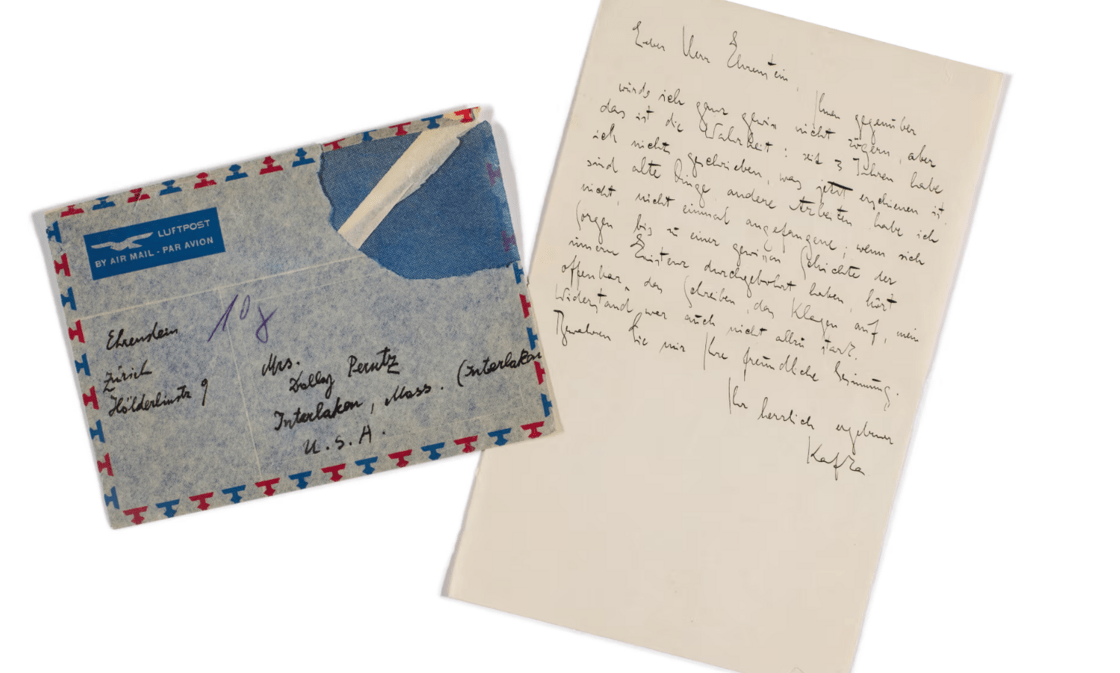 LUFTPOST
BY AIR MAIL - PAR AVION
Ehrenstein
Zürich
Hölderlinstr 9
10 g
Mrs.
Dolly Perutz
Interlaken, Mass. (Interlaken
U.S.A.
Lieber Herr Ehrenstein,
Ihnen gegenüber
würde ich ganz gewiss nicht zögern, aber
das ist die Wahrheit: seit 3 Jahren habe
ich nichts geschrieben, was jetzt erschienen ist
sind alte Dinge andere Arbeiten habe ich
nicht, nicht einmal angefangene; wenn sich
Sorgen bis zu einer gewissen Schichte der
innern Existenz durchgebohrt haben, hört
offenbar das Schreiben, das Klagen auf, mein
Widerstand war auch nicht allzu stark.
Bewahren Sie mir Ihre freundliche Gesinnung.
Ihr herzlich ergebener
Kafka